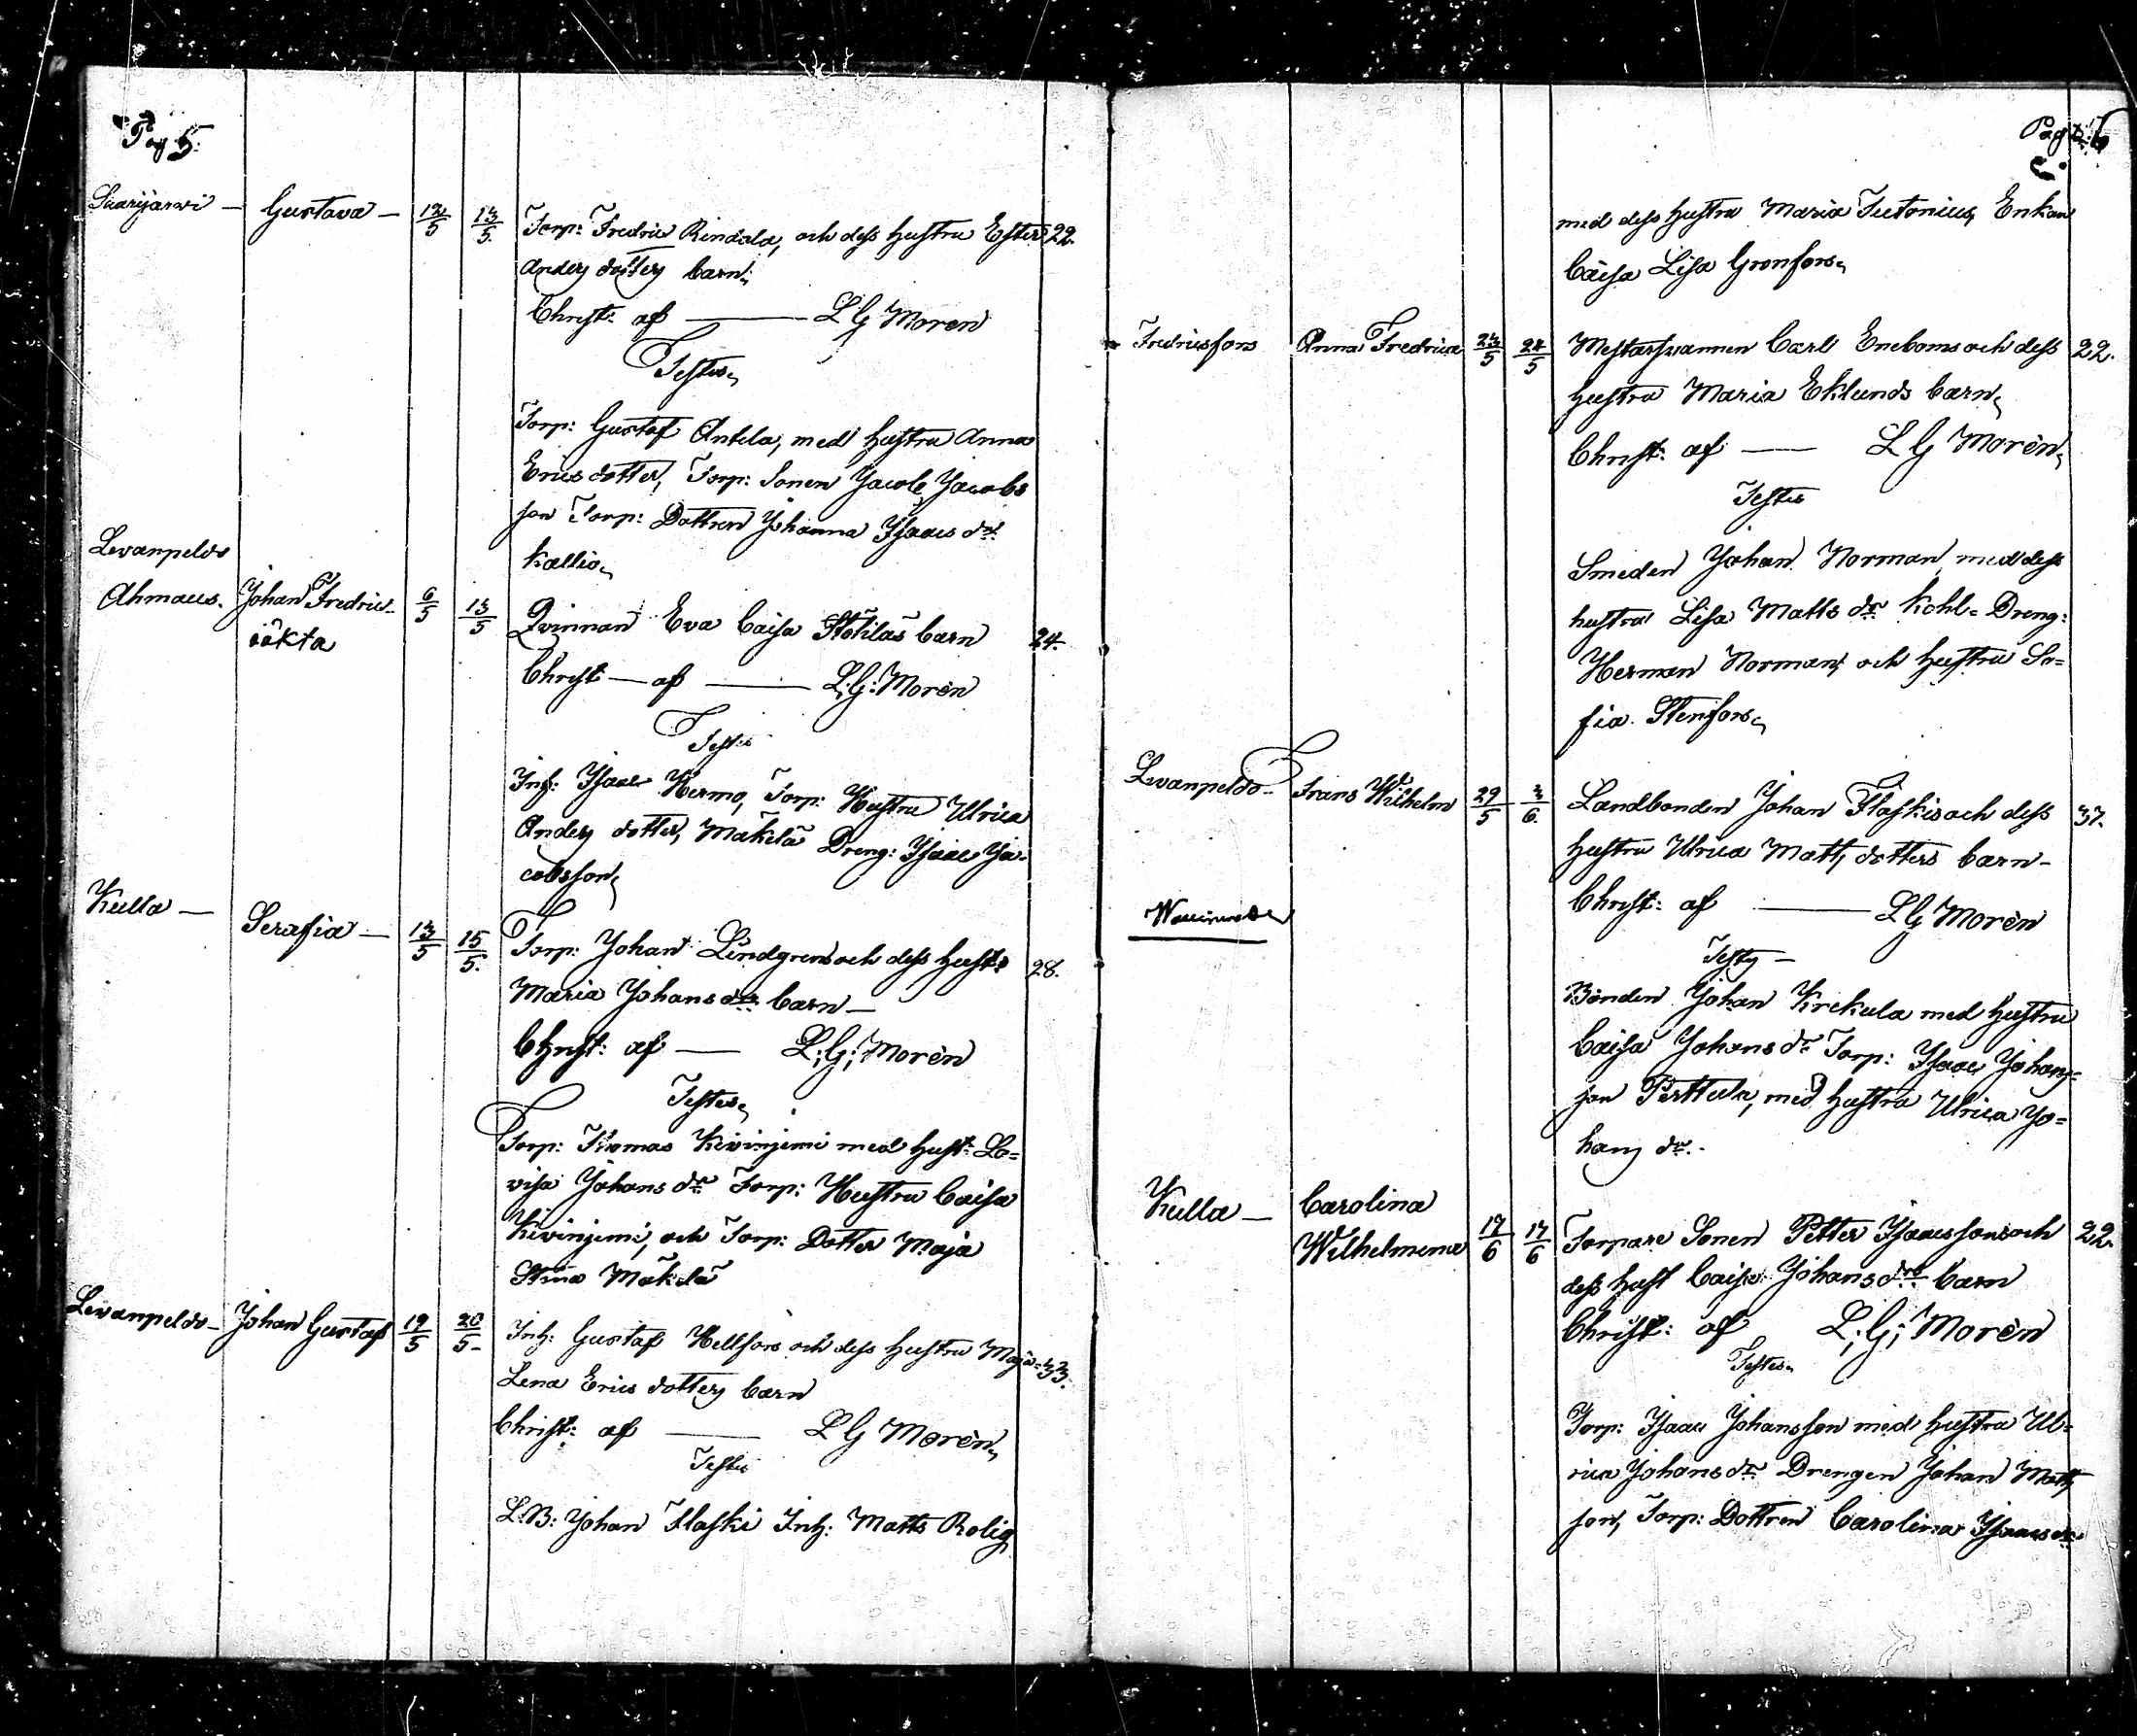 Pag 5.
Saarijarwi — Gustava — 12/5 13/5. Torp: Fredric Rindala, och dess hustru Ester 22.
Anders dotters barn.
Christ: af — L G Moren
Testes.
Torp: Gustaf Antila, med hustru Anna
Erics dotter, Torp: Sonen Jacob Jacobs
son Torp: Dottren Johanna Isaacs dr:
Kallio.
Levanpeldo
Ahmaus. Johan Fredric 6/5 13/5 Qvinnan Eva Caisa Stohilas barn 24.
oäkta
Christ — af — L: G: Morèn
Testes
Inh: Isaac Hermo, Torp: Hustru Ulrica
Anders dotter, Mäkelä Dreng: Isaac Ja-
cobsson,
Kulla — Serafia — 13/5 15/5. Torp: Johan Lindgrens och dess hust: 28.
Maria Johans drs: barn —
Christ: af — L; G; Morèn
Testes.
Torp: Thomas Kivinjemi med hust: Lo=
visa Johans dr Torp: Hustru Caisa
Kivinjemi, och Torp: Dotter Maja
Stina Mäkelä
Levanpeldo — Johan Gustaf 19/5 20/5 Inh: Gustaf Hellfors och dess hustru Maja= 33.
Lena Erics dotters barn
Christ: af — L G Morèn,
Testes
L:B: Johan Flaski Inh: Matts Rolig
Pag: 6
med dess hustru Maria Teetonius, Enkan
Caisa Lisa Gronfors.
Fredricsfors Anna Fredrica 23/5 24/5 Mestarsvannen Carl Eneboms och dess 22.
hustru Maria Eklunds barn,
Christ: af — L G Morèn,
Testes
Smeden Johan Norman, med dess
hustru Lisa Matts dr Kohl= Dreng:
Herman Norman, och hustru So=
fia Stenfors,
Levanpeldo — Frans Wilhelm 29/5 3/6. Landbonden Johan Flaskis och dess 37.
hustru Ulrica Matts dotters barn —
Christ: af — L G Morèn
Testes —
Bonden Johan Krekula med hustru
Caisa Johans dr Torp: Isaac Johans=
son Perttula, med hustru Ulrica Jo=
hans dr.
Kulla — Carolina
Wilhelmina 17/6 17/6 Torpare Sonen Petter Isaacssons och 22.
dess hust Caisa Johans drs barn
Christ: af L; G; Morèn
Testes.
Torp: Isaac Johansson med hustru Ul=
rica Johans dr Drengen Johan Matts
son, Torp: Dottren Carolina Isaacs dr: